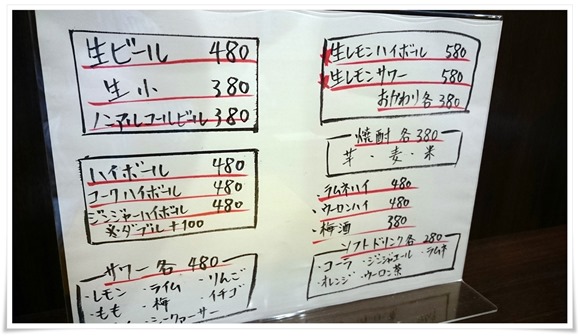 生ビール 480
生小 380
ノンアルコールビール 380
ハイボール 480
コークハイボール 480
ジンジャーハイボール 480
※ダブル+100
サワー各 480
・レモン ・ライム ・りんご
・もも ・梅 ・イチゴ
シークァーサー
生レモンハイボール 580
生レモンサワー 580
おかわり各 380
焼酎 各380
芋・麦・米
・ラムネハイ 480
・ウーロンハイ 480
・梅酒 380
ソフトドリンク各 280
・コーラ ・ジンジャエール ・ラムネ
・オレンジ ・ウーロン茶